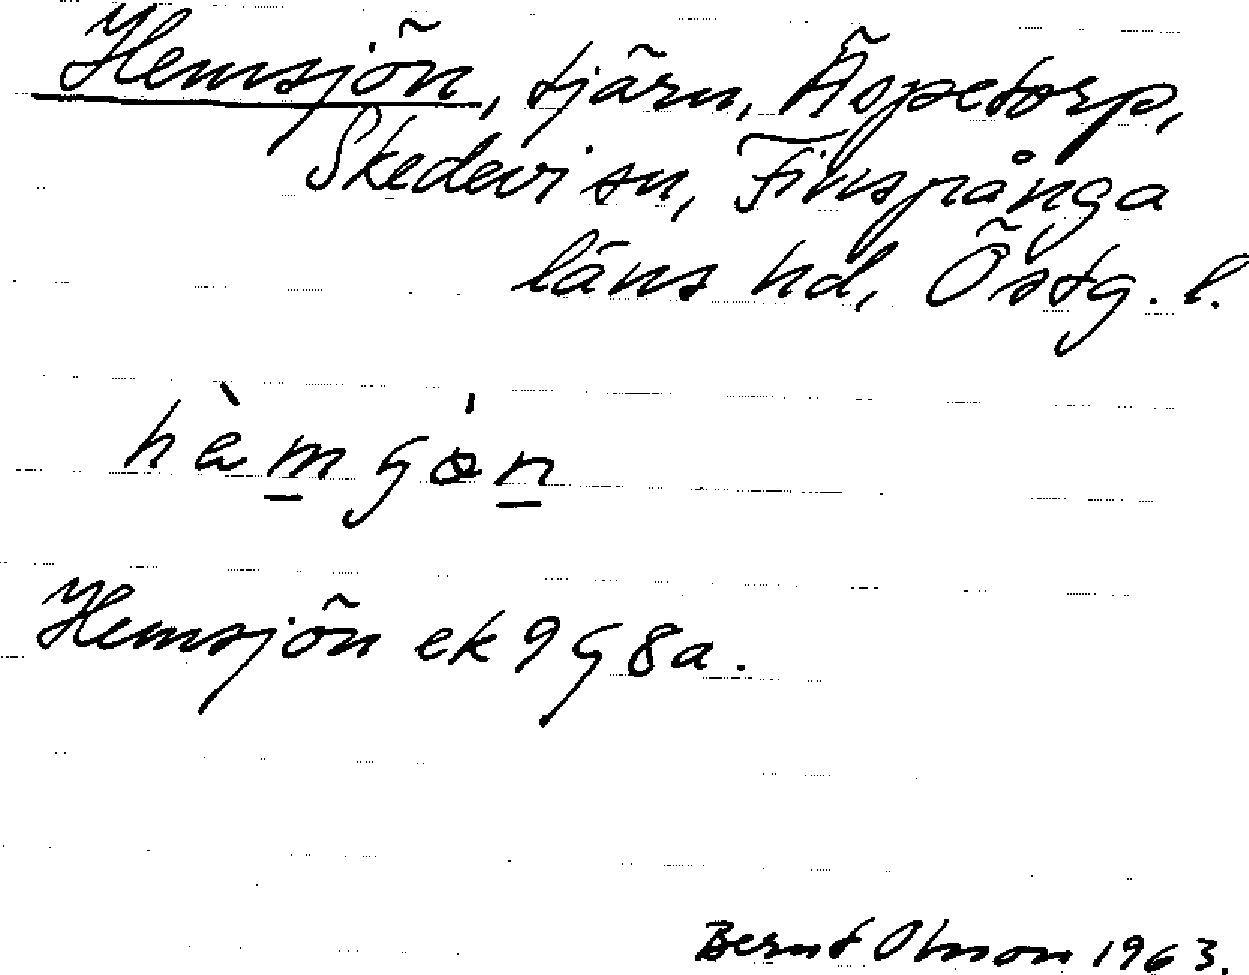 Hemsjön, tjärn, Äspetorp,
Skedevi sn, Finspånga
läns hd, Östg. l.
hèmgön
Hemsjön ek 9 G 8a.
Bernt Olsson 1963.